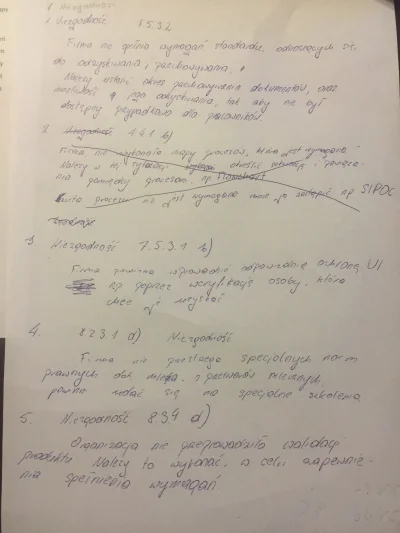 1. Niezgodność 7.5.3.2
Firma nie spełnia wymagań standardów odnoszących się
do odzyskiwania i przechowywania.
Należy ustalić okres przechowywania dokumentów, oraz
możliwość jego odzyskiwania, tak aby nie był
dostępny przypadkowo dla pracowników.
2. Niezgodność 4.4.1 b)
Firma nie wykonała mapy procesów, która jest wymagana
Należy w tej sytuacji określić i powiąza-
nia pomiędzy procesami, np Flowchart
procesów nie jest wymagana może ją zastąpić np SIPOC
3. Niezgodność 7.5.3.1 b)
Firma powinna wprowadzić odpowiednią ochronę UI
np poprzez weryfikację osoby, która
chce je uzyskać
4. 8.2.3.1 d) Niezgodność
Firma nie przestrzega specjalnych norm
prawnych dot. mleka i przetworów mlecznych,
powinna udać się na specjalne szkolenia
5. Niezgodność 8.3.4 d)
Organizacja nie przeprowadziła walidacji
produktu Należy to wykonać, w celu zapewnie-
nia spełnienia wymagań